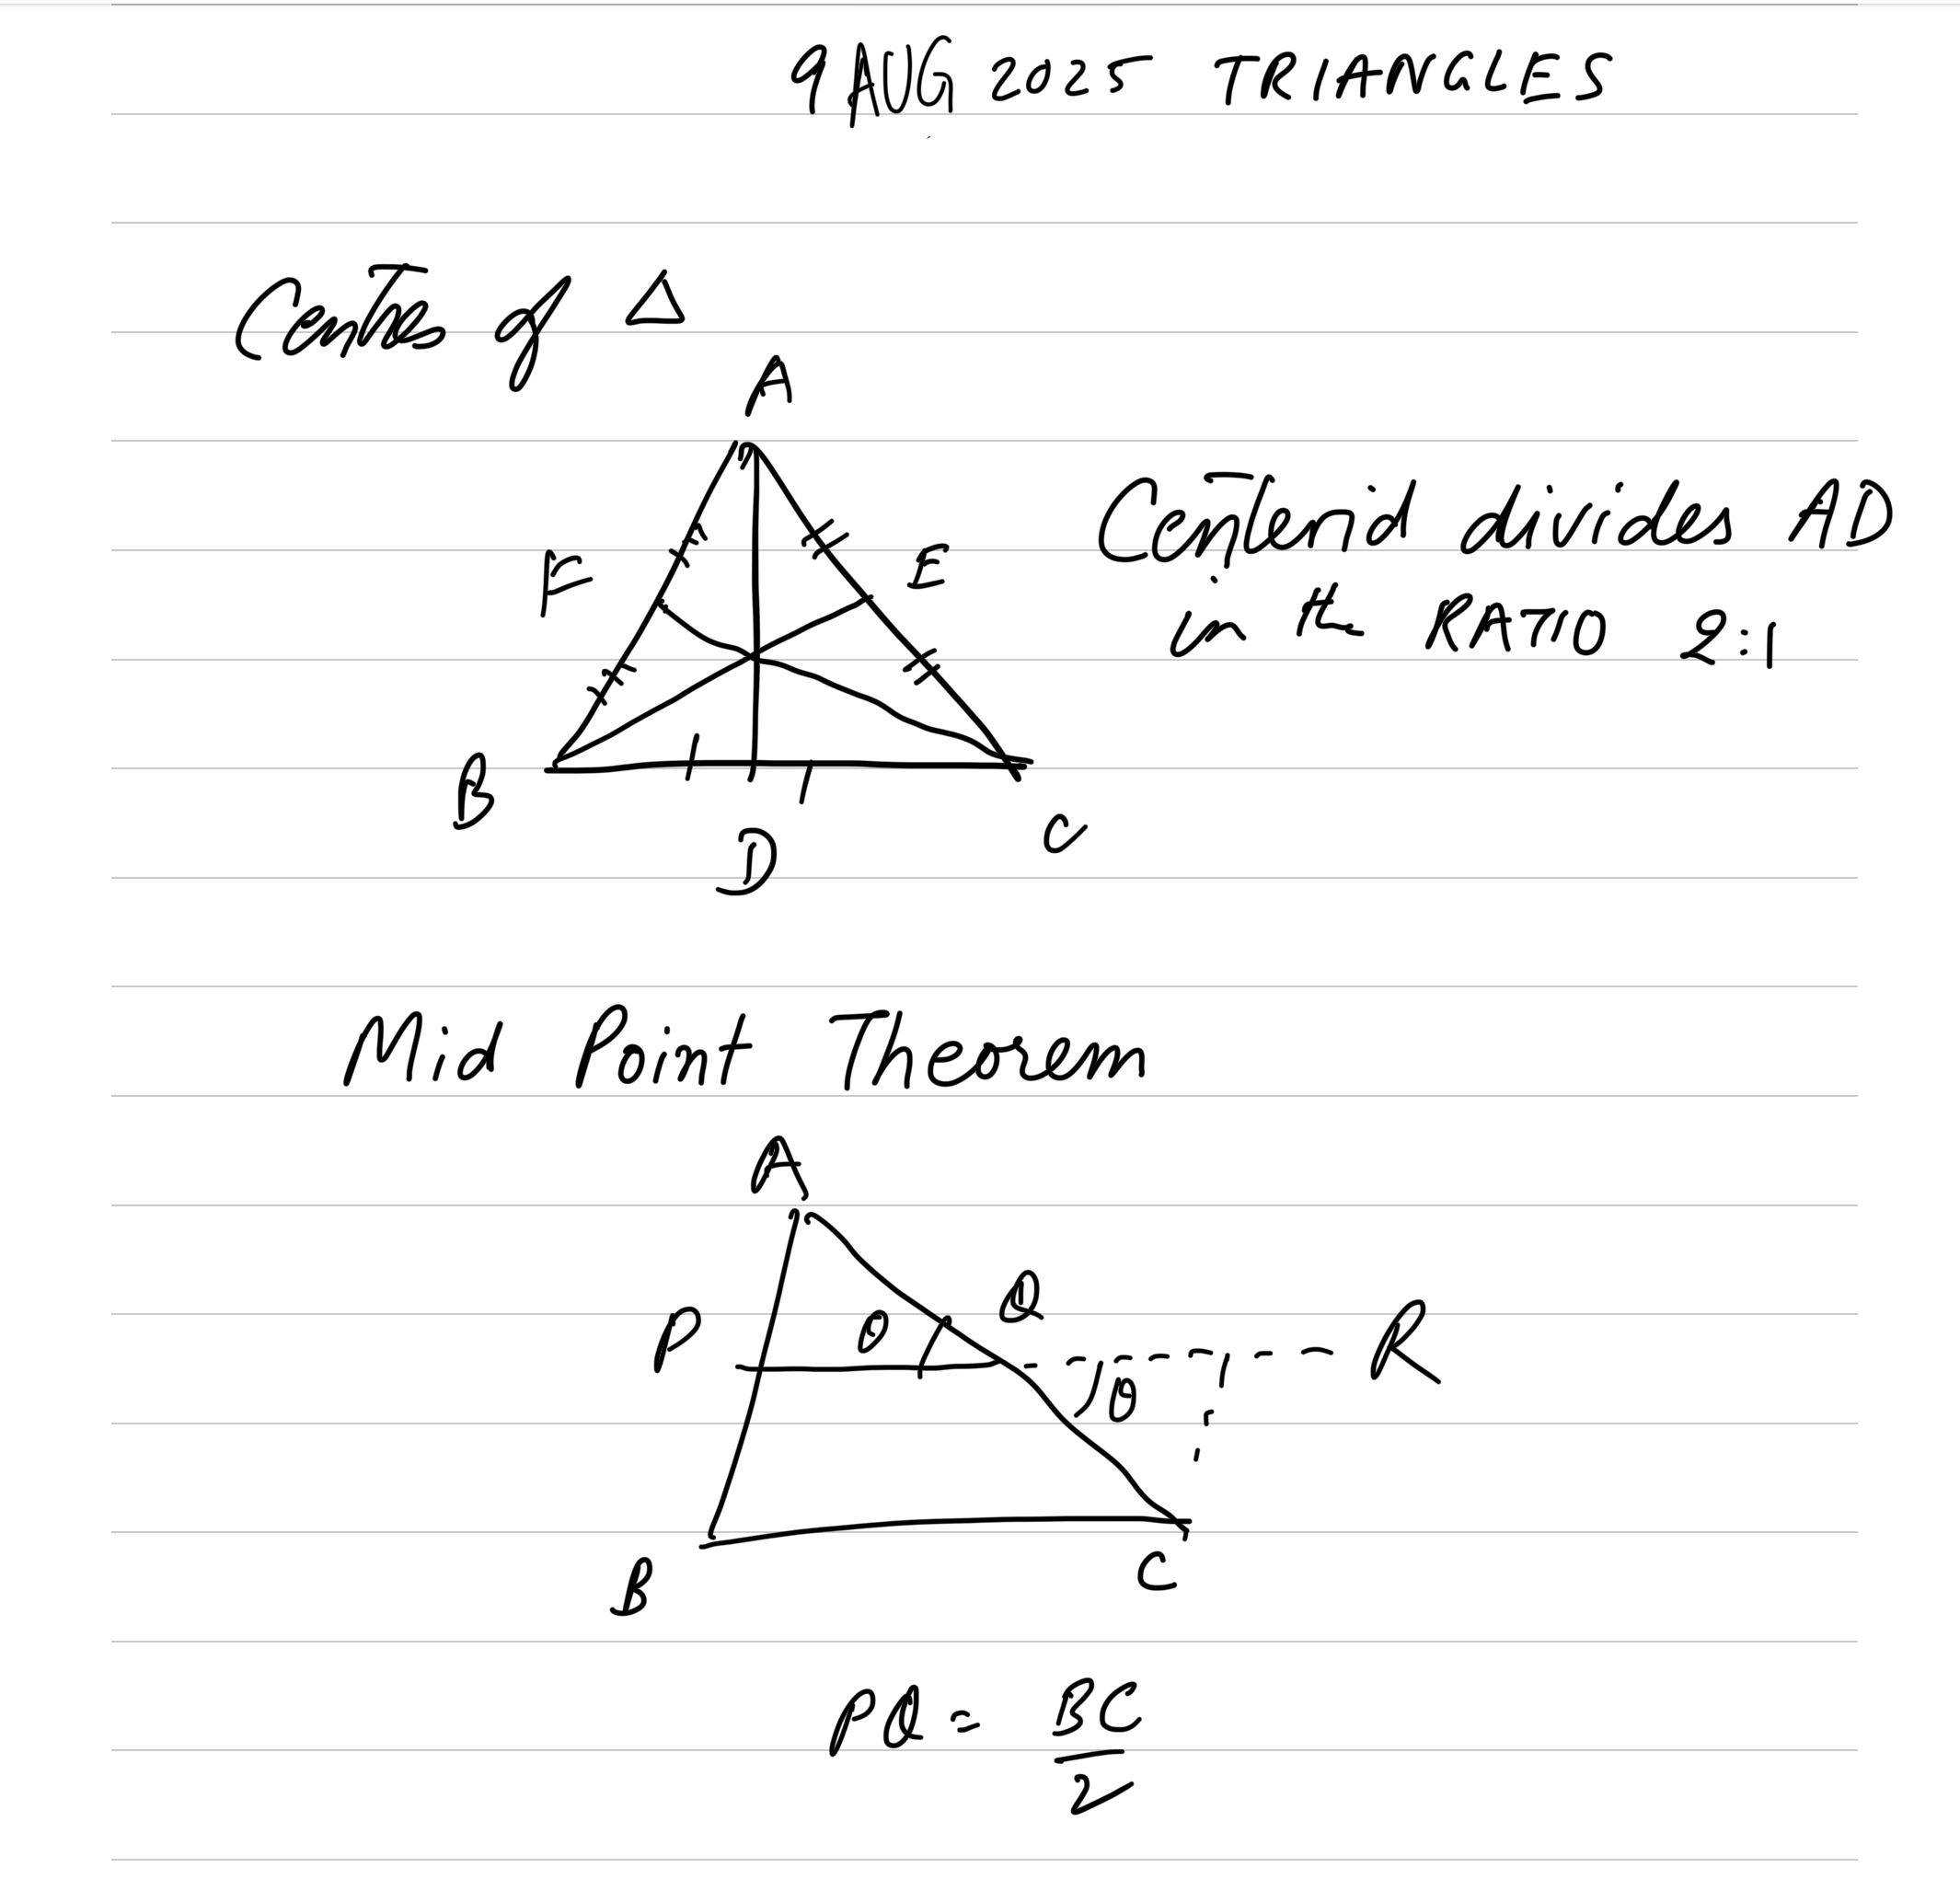 9 AUG 2025 TRIANGLES
Centres of Δ
A
F
E
Centeroid divides AD
in the RATIO 2:1
B
D
C
Mid Point Theorem
A
P
θ
Q
R
θ
B
C
PQ = BC/2